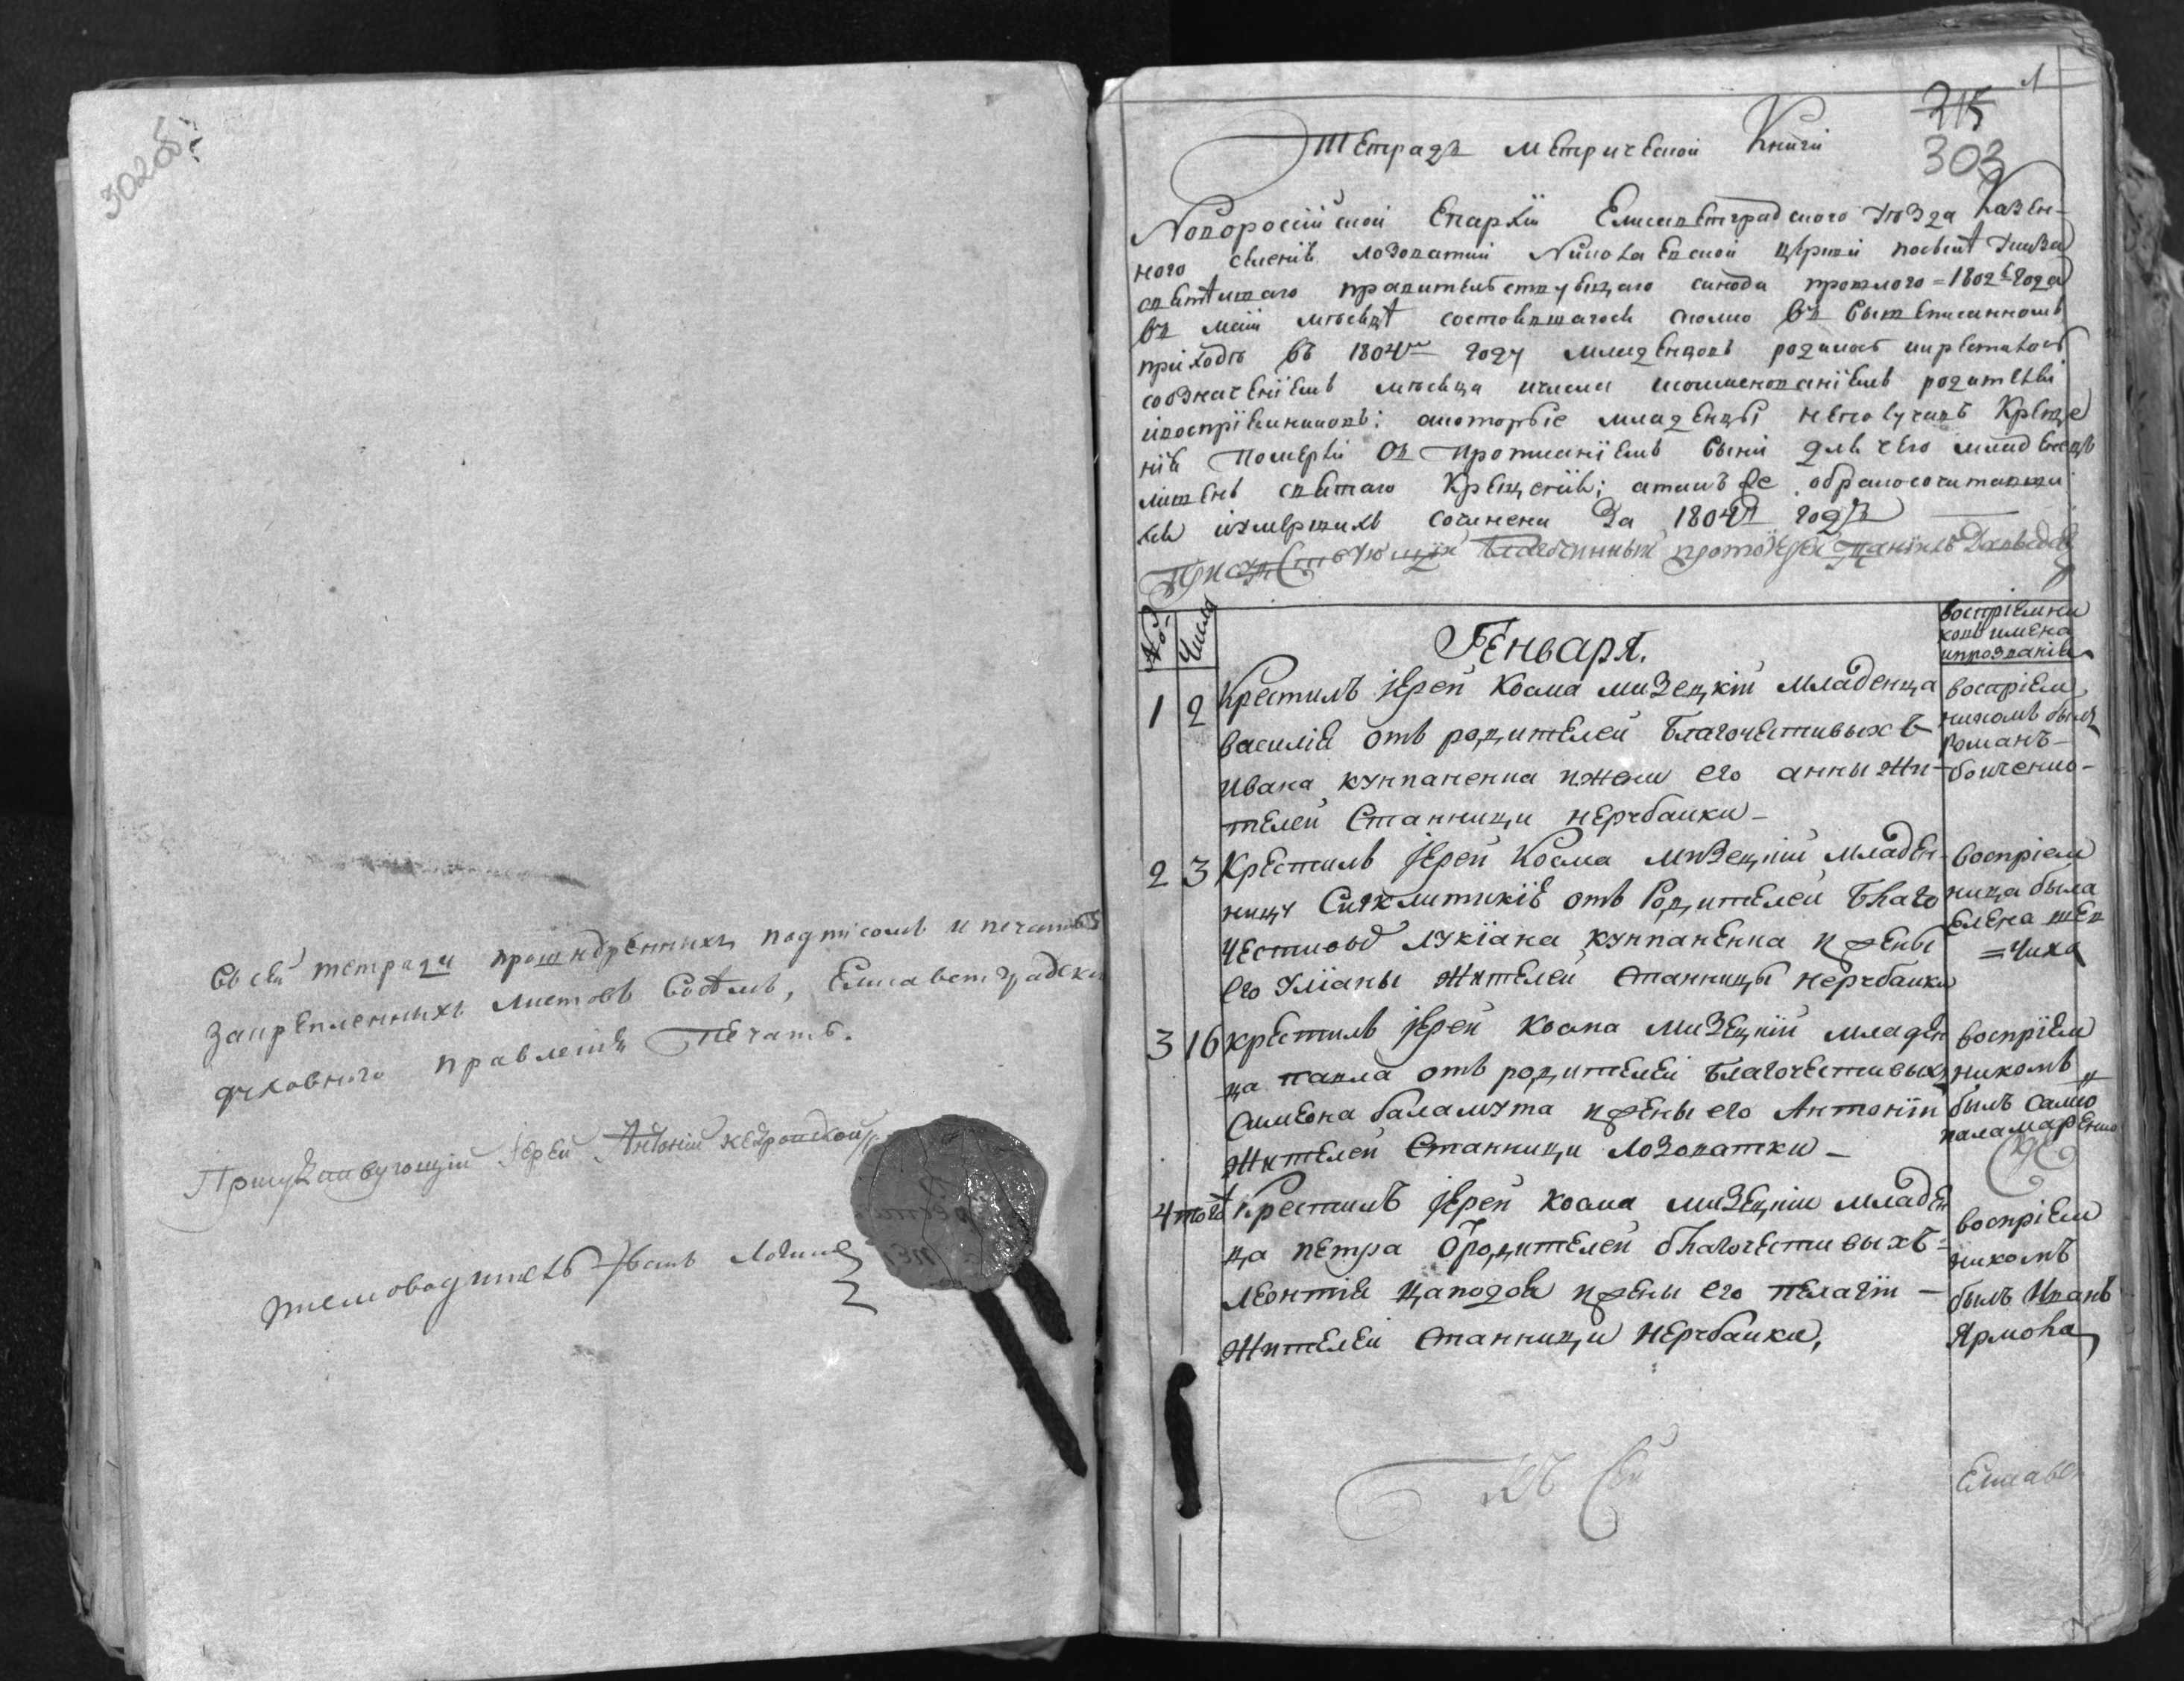 302об
Въ сей тетради прошнурренныхъ подписомъ и печатью
закрепленныхъ листовъ восѣмъ, Елисаветградска
духовного правленія Печать.
Присудствующій Іерей Антоній
Писмоводитель Іванъ Логин
1
215
303
Тетрадь метрической Книги
Новоросійской Епархіи Елисаветградского уѣзда Казен-
ного селенія Лозоватки Николаевской церкви по силѣ указа
святѣшаго правителствующаго синода прошлого 1802 года
въ маіи месяцѣ состоявшагося сколко въ вышеписанномъ
приходѣ въ 1804м году младенцовъ родилось икрестилось
созначеніемъ месяца ичисла инаименованіемъ родителей
ивоспріемниковъ; акоторые младенцы неполучивъ Креще
нія Померли съ прописаніемъ вины для чего младенецъ
лишенъ святаго Крещенія; атакъ же обракосочитавши
хся иумершихъ сочинена За 1804й годъ
Присудствующій протоіерей Даніилъ
№ Числа
Генваря.
воспріемни
ковъ имена
ипрозванія
1 2 Крестилъ іерей Косма мизецкій младенца
василія отъ родителей благочестивыхъ
Ивана кунпаненка ижени его анны жи-
телей Станници нерубайки
воспріем
никомъ былъ
Романъ
бойченко
2 3 Крестилъ іерей Косма мизецкій младен
ницу Сигклитикію отъ Родителей благо
честивыхъ лукіана кунпаненка ижены
его уліаны жителей станницы нерубайки
воспріем
ница была
Елена шев
=чиха
3 16 крестилъ іерей косма мизецкій младен
ца павла отъ родителей благочестивыхъ
Симеона баламута ижены его Антоніи
жителей Станници Лозоватки
воспріем
никомъ
былъ само
паламаренко
4 того Крестилъ іерей косма мизецкій младен
ца петра О родителей благочестивыхъ
леонтія ижены его пелагіи
жителей станници Нерубайки,
воспріем
никомъ
былъ Иванъ
Ярмола
Къ Сей
Елисаве